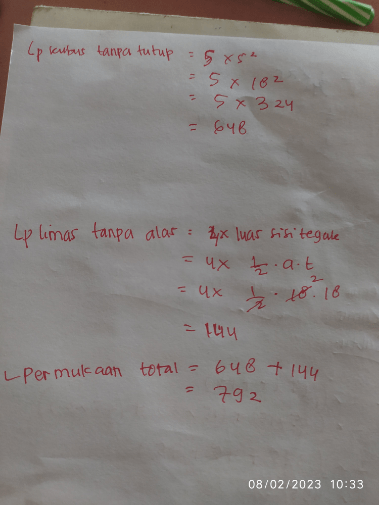 Lp kubus tanpa tutup = 5 x s²
= 5 x 18²
= 5 x 324
= 648
Lp limas tanpa alas = 4x luas sisi tegak
= 4x 1/2 . a.t
= 4x 1/2 . 18² . 18
= 144
L permukaan total = 648 + 144
= 792
08/02/2023 10:33